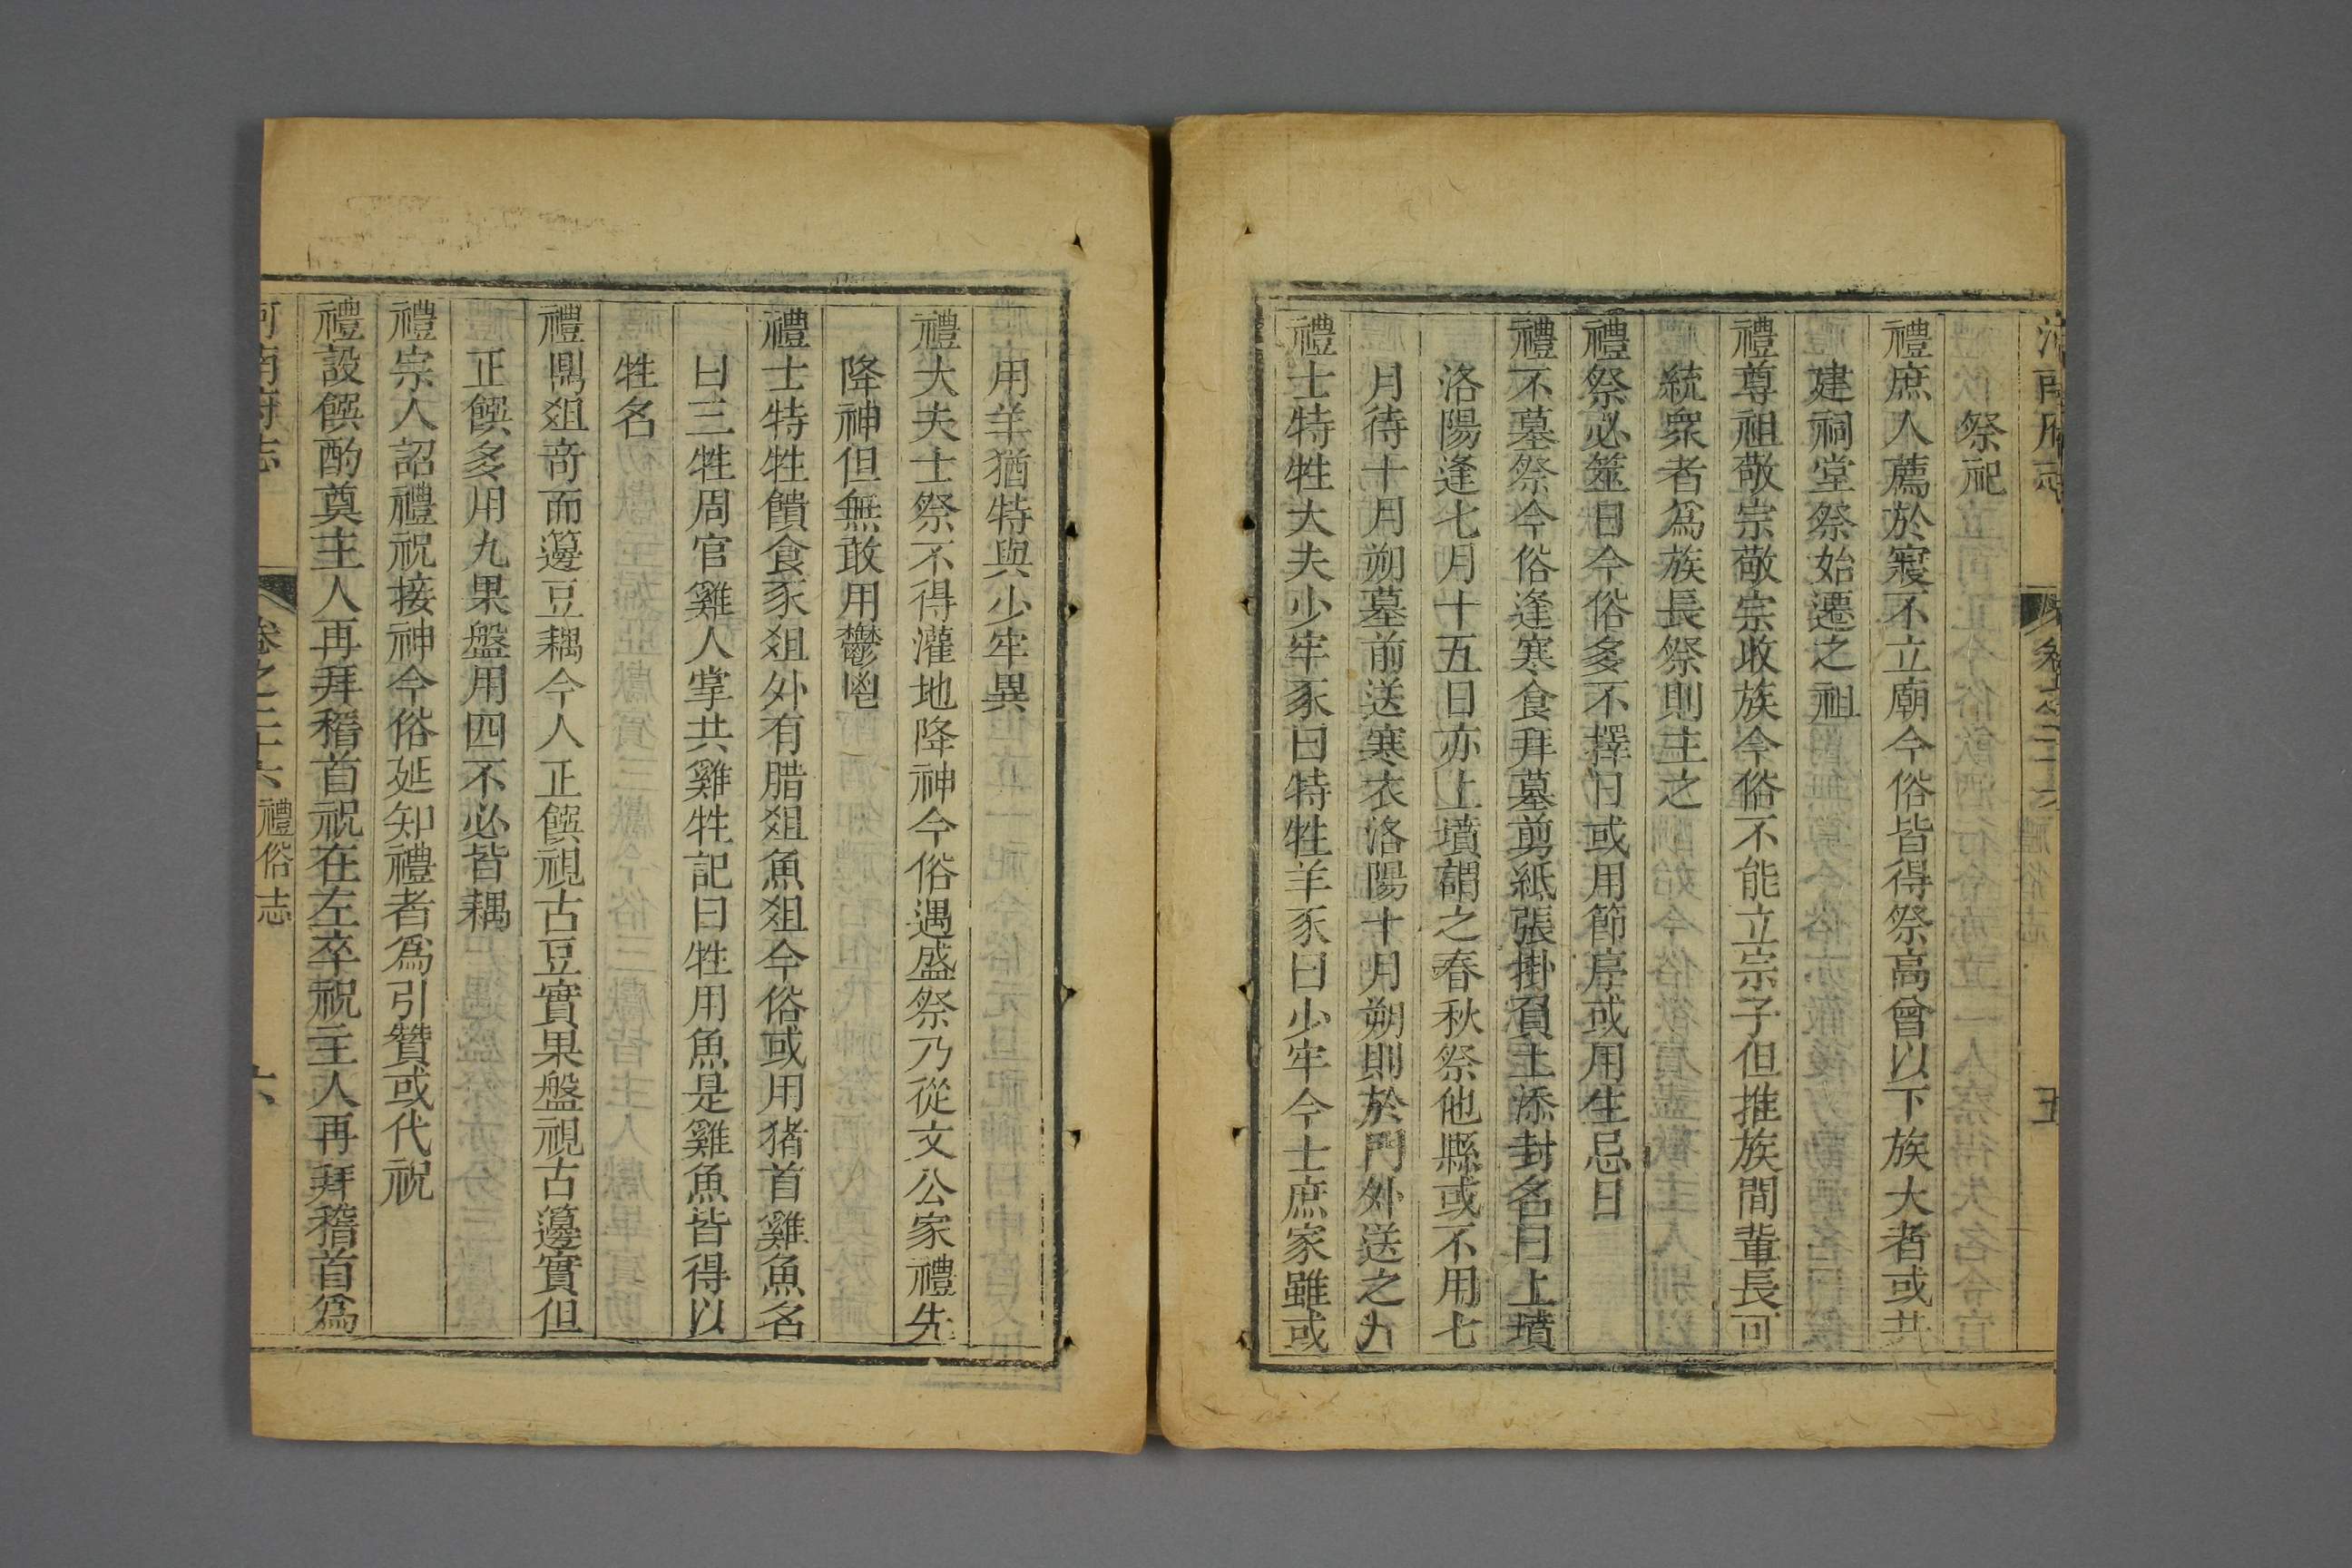 河南府志 卷之二十六 禮俗志 五
祭祀
禮庶人薦於寢不立廟今俗皆得祭高曾以下族大者或共
建祠堂祭始遷之祖
禮尊祖敬宗敬宗收族今俗不能立宗子但推族間輩長可
統衆者爲族長祭則主之
禮祭必筮日今俗多不擇日或用節序或用生忌日
禮不墓祭今俗逢寒食拜墓剪紙張掛負土添封名曰上墳
洛陽逢七月十五日亦上墳謂之春秋祭他縣或不用七
月待十月朔墓前送寒衣洛陽十月朔則於門外送之九
禮士特牲大夫少牢豕曰特牲羊豕曰少牢今士庶家雖或
用羊猶特與少牢異
禮大夫士祭不得灌地降神今俗遇盛祭乃從文公家禮先
降神但無敢用鬱鬯
禮士特牲饋食豕俎外有腊俎魚俎今俗或用猪首雞魚名
曰三牲周官雞人掌共雞牲記曰牲用魚是雞魚皆得以
牲名
禮鼎俎奇而籩豆耦今人正饌視古豆實果盤視古籩實但
正饌多用九果盤用四不必皆耦
禮宗人詔禮祝接神今俗延知禮者爲引贊或代祝
禮設饌酌奠主人再拜稽首祝在左卒祝主人再拜稽首爲
河南府志 卷之二十六 禮俗志 六